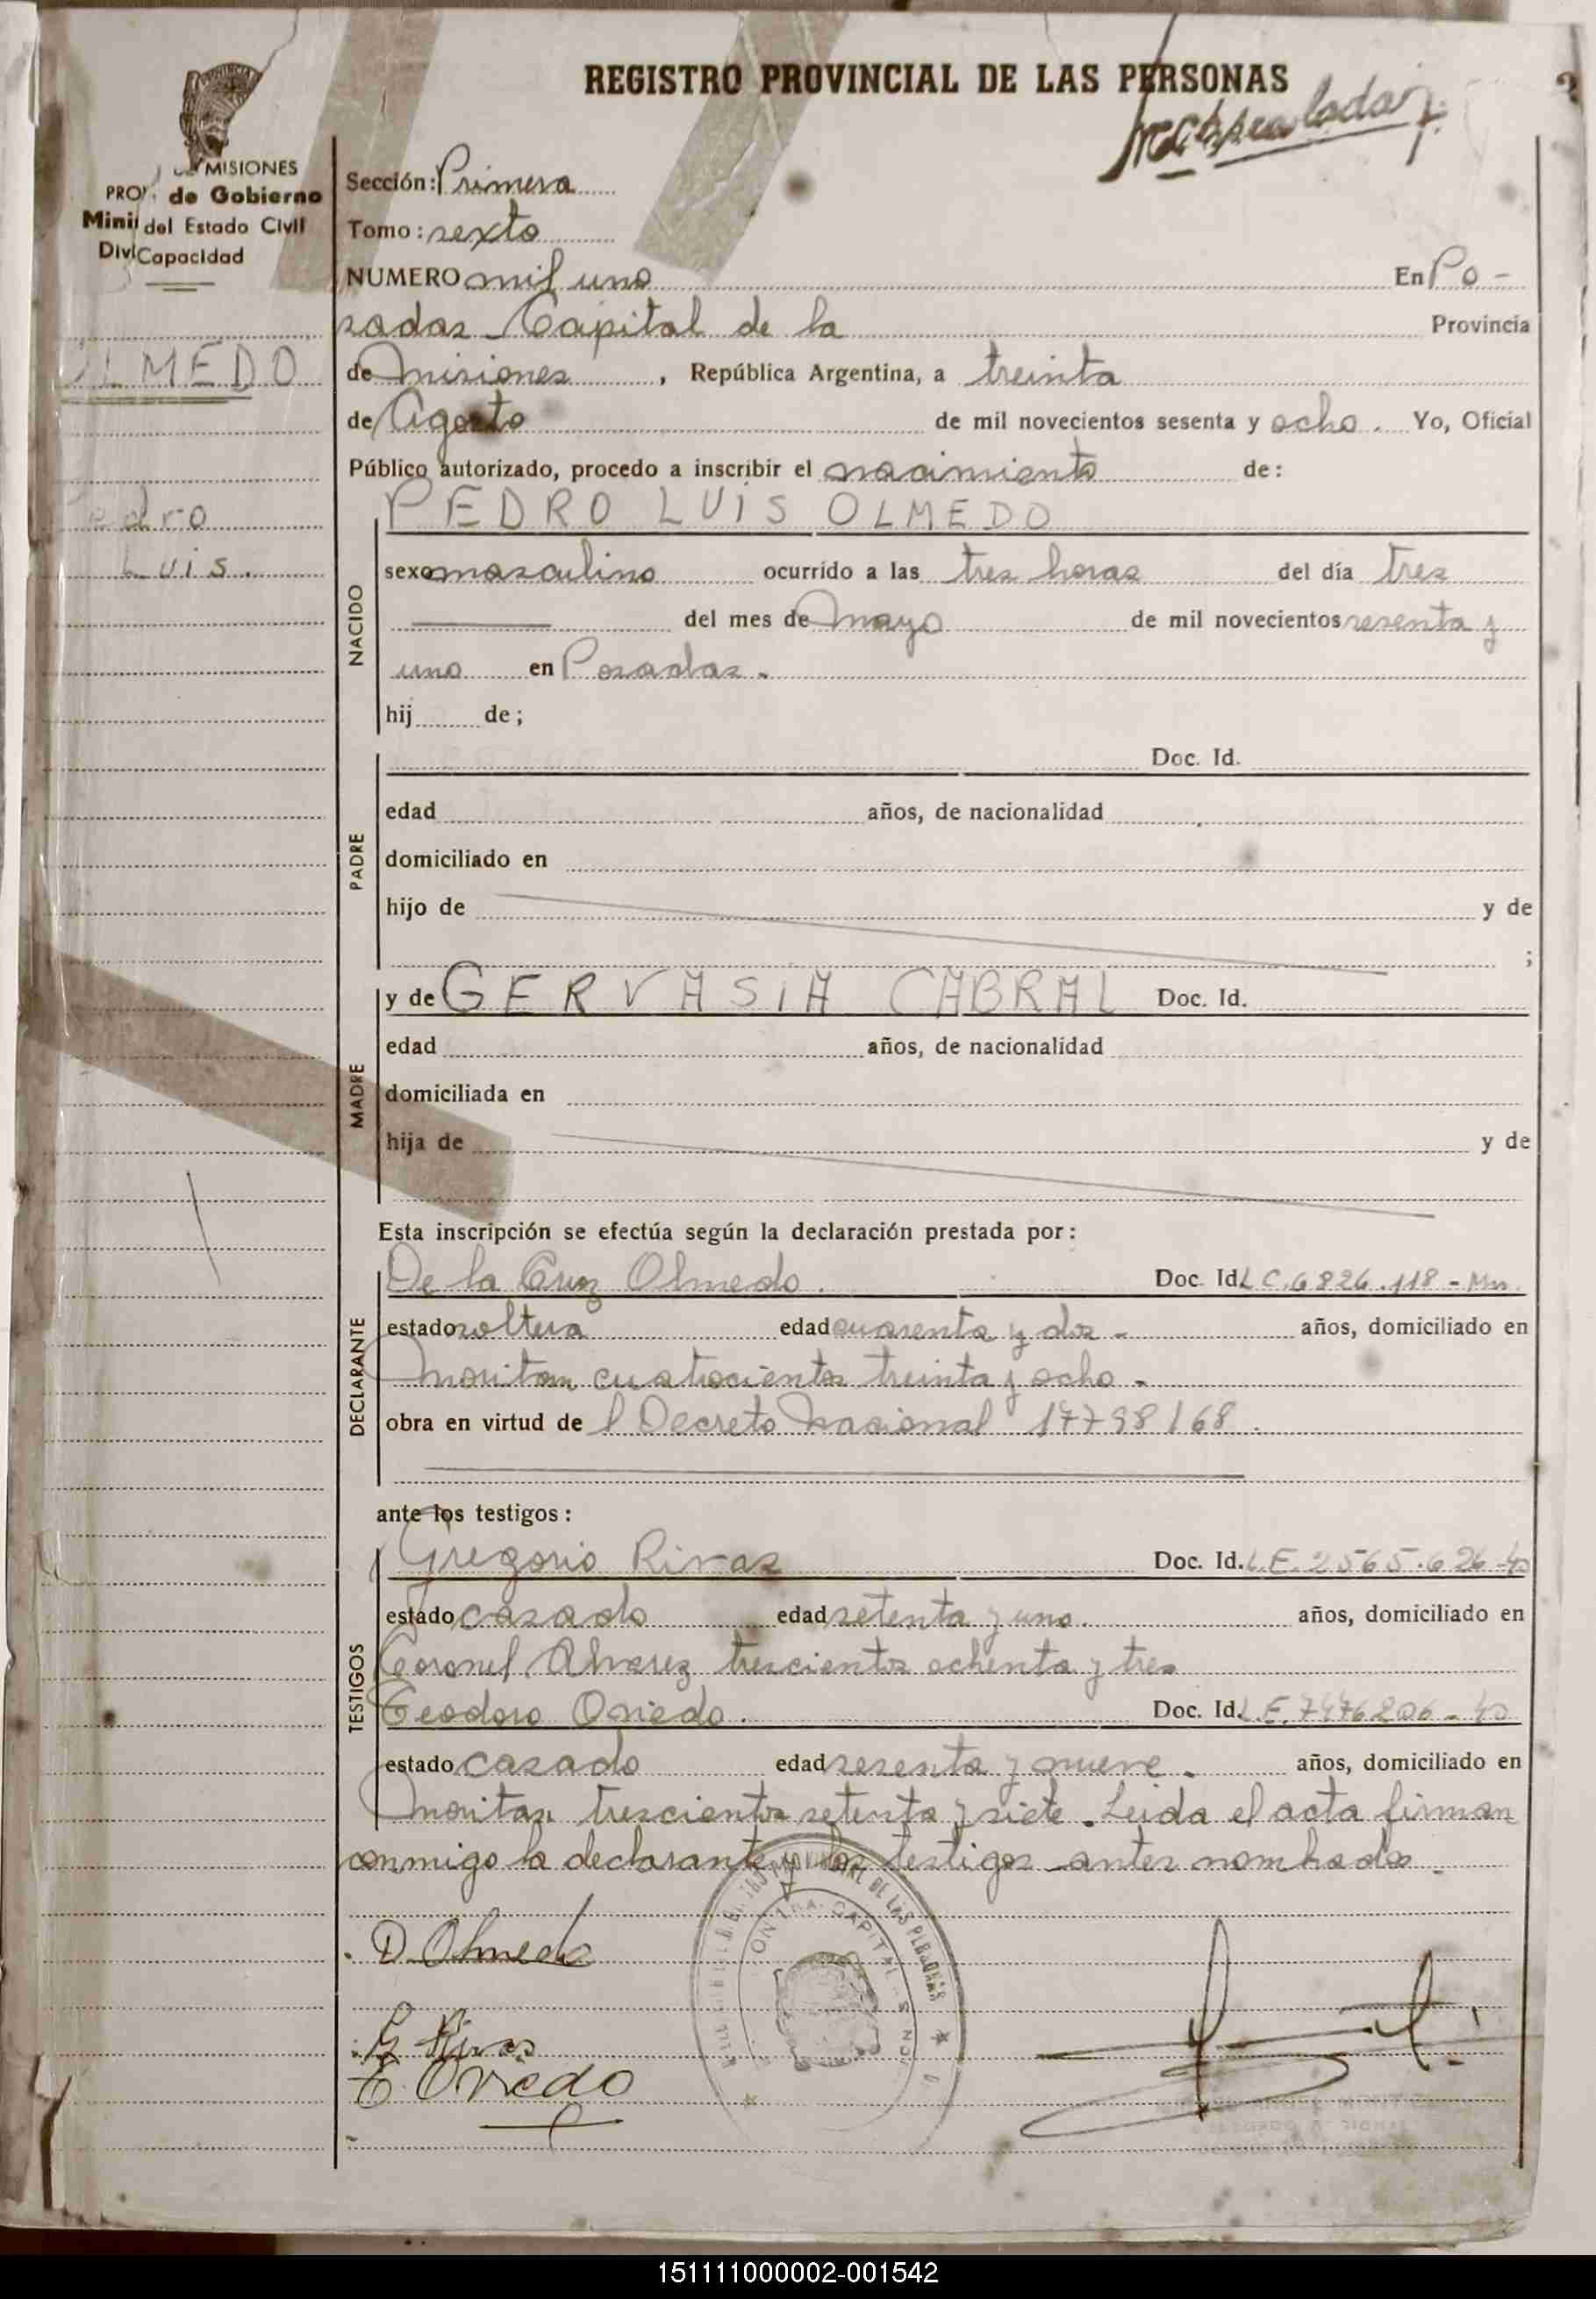 REGISTRO PROVINCIAL DE LAS PERSONAS
MISIONES
de Gobierno
del Estado Civil
Capacidad
Sección: Primera
Tomo: sexto
NUMERO mil uno En Po-
sadas Capital de la Provincia
OLMEDO
de Misiones, República Argentina, a treinta
de Agosto de mil novecientos sesenta y ocho. Yo, Oficial
Público autorizado, procedo a inscribir el nacimiento de:
Pedro
Luis.
NACIDO
PEDRO LUIS OLMEDO
sexo masculino ocurrido a las tres horas del día tres
del mes de Mayo de mil novecientos sesenta y
uno en Posadas.
hij de;
PADRE
Doc. Id.
edad años, de nacionalidad
domiciliado en
hijo de y de
;
MADRE
y de GERVASIA CABRAL Doc. Id.
edad años, de nacionalidad
domiciliada en
hija de y de
Esta inscripción se efectúa según la declaración prestada por:
DECLARANTE
De la Cruz Olmedo. Doc. Id. L.C. 6826.118 - Mns.
estado soltera edad cuarenta y dos - años, domiciliado en
cuatrocientos treinta y ocho -
obra en virtud de l Decreto Nacional 17798/68.
ante los testigos:
TESTIGOS
Gregorio Rivas Doc. Id. L.E. 2565.626-40
estado casado edad setenta y uno. años, domiciliado en
Coronel Alvarez trescientos ochenta y tres
Teodoro Oviedo. Doc. Id. L.E. 7476206-40
estado casado edad sesenta y nueve. años, domiciliado en
trescientos setenta y siete. Leida el acta firman
conmigo la declarante y los testigos antes nombrados.
D. Olmedo
G. Rivas
T. Oviedo
151111000002-001542